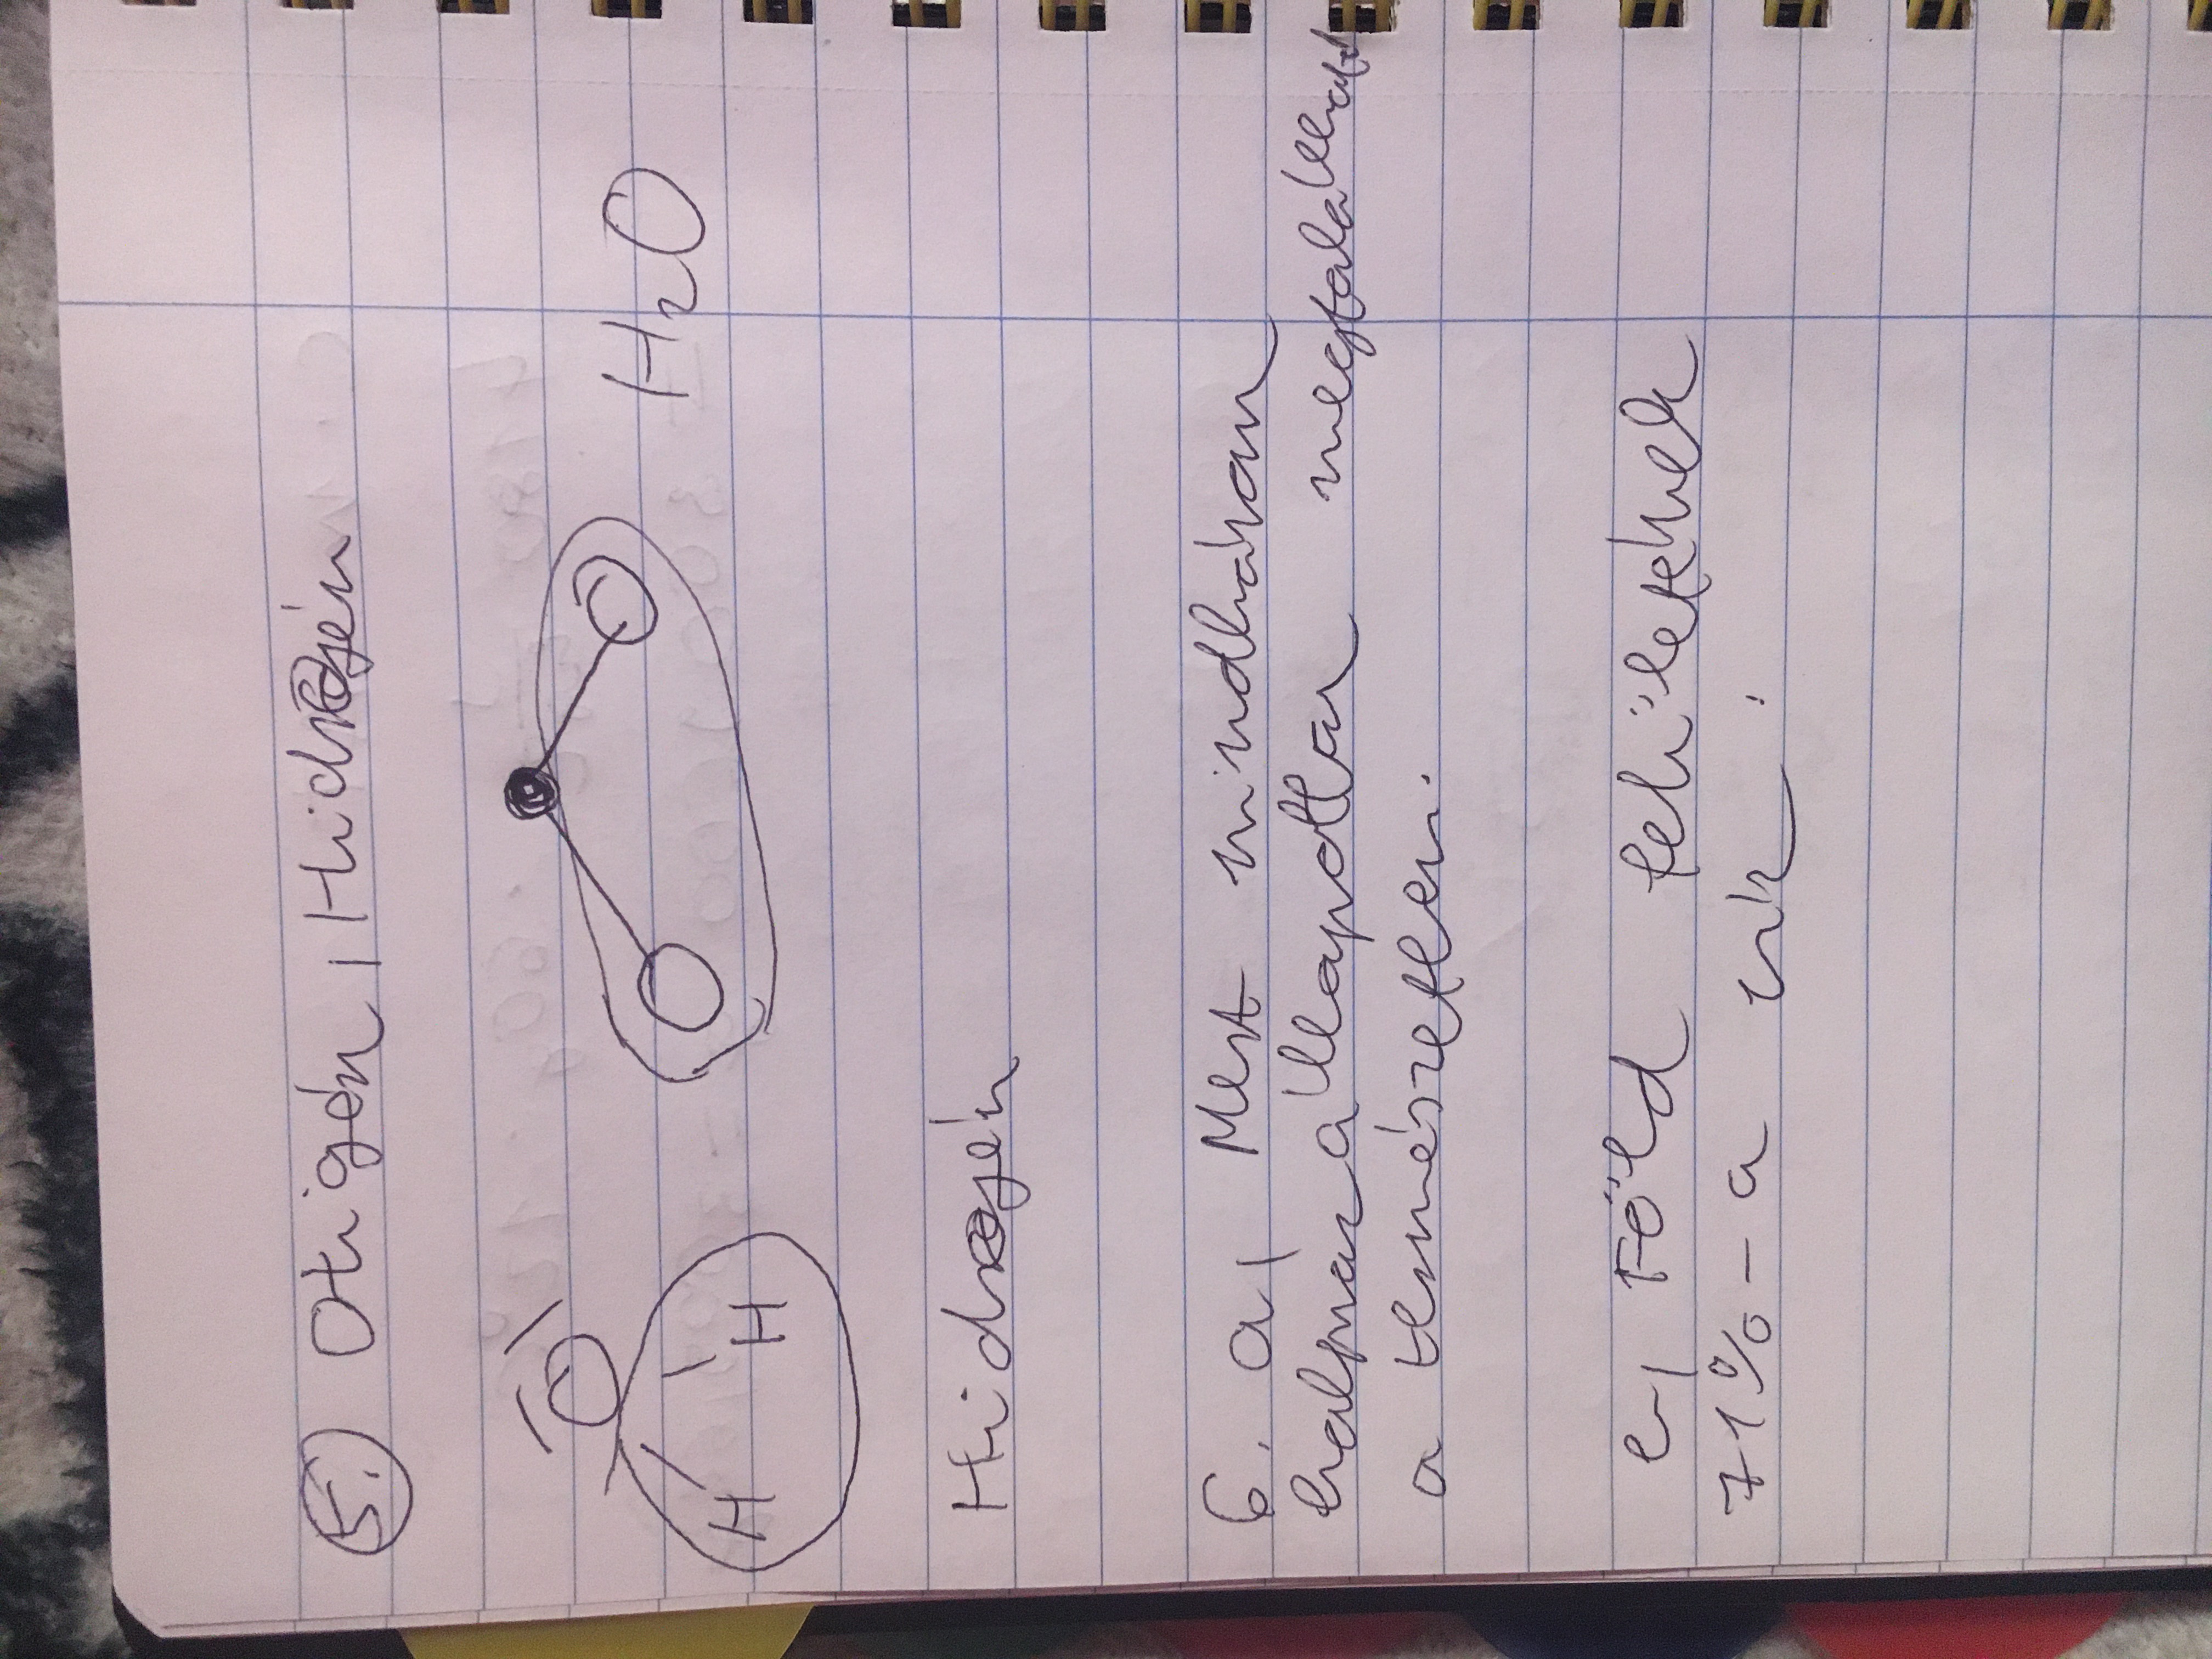 5.) Oxigén, Hidrogén
O
H H
H₂O
Hidrogén
6. a, Mert mindhárom
halmazállapotban megtalálható
a természetben.
c, Föld felületének
71%-a víz.